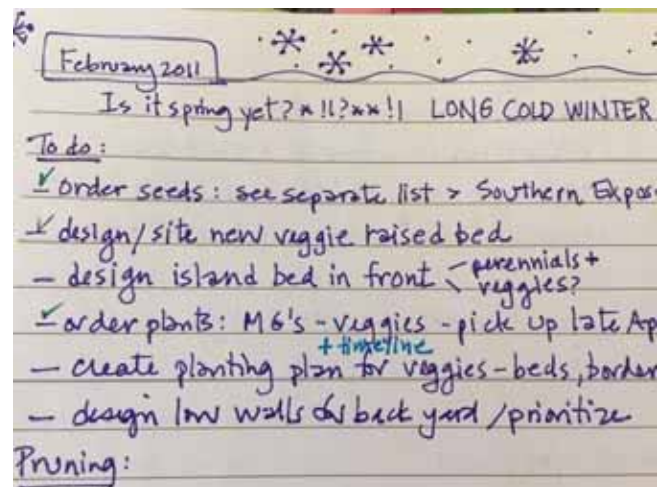 February 2011
Is it spring yet? * !!? ** !! LONG COLD WINTER
To do:
✓ order seeds: see separate list > Southern Expos
✓ design/site new veggie raised bed
— design island bed in front < perennials + veggies?
✓ order plants: MG's - veggies - pick up late Ap
+ timeline
— create planting plan for veggies - beds, border
— design low walls for back yard / prioritize
Pruning: